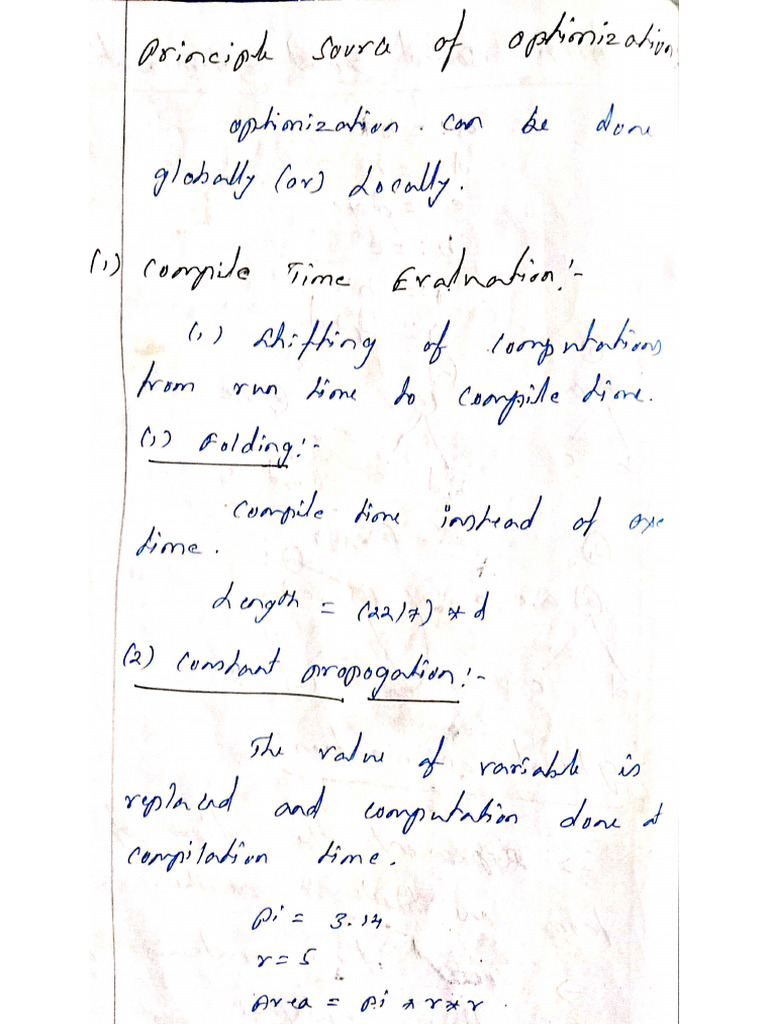 Principle Source of optimization
optimization can be done
globally (or) Locally.
(1) Compile Time Evaluation:-
(1) Shifting of computations
from run time to compile time.
(1) Folding:-
Compile time instead of exe
time.
Length = (22/7) * d
(2) Constant propogation:-
The value of variable is
replaced and computation done at
compilation time.
Pi = 3.14
r = 5
Area = Pi * r * r.